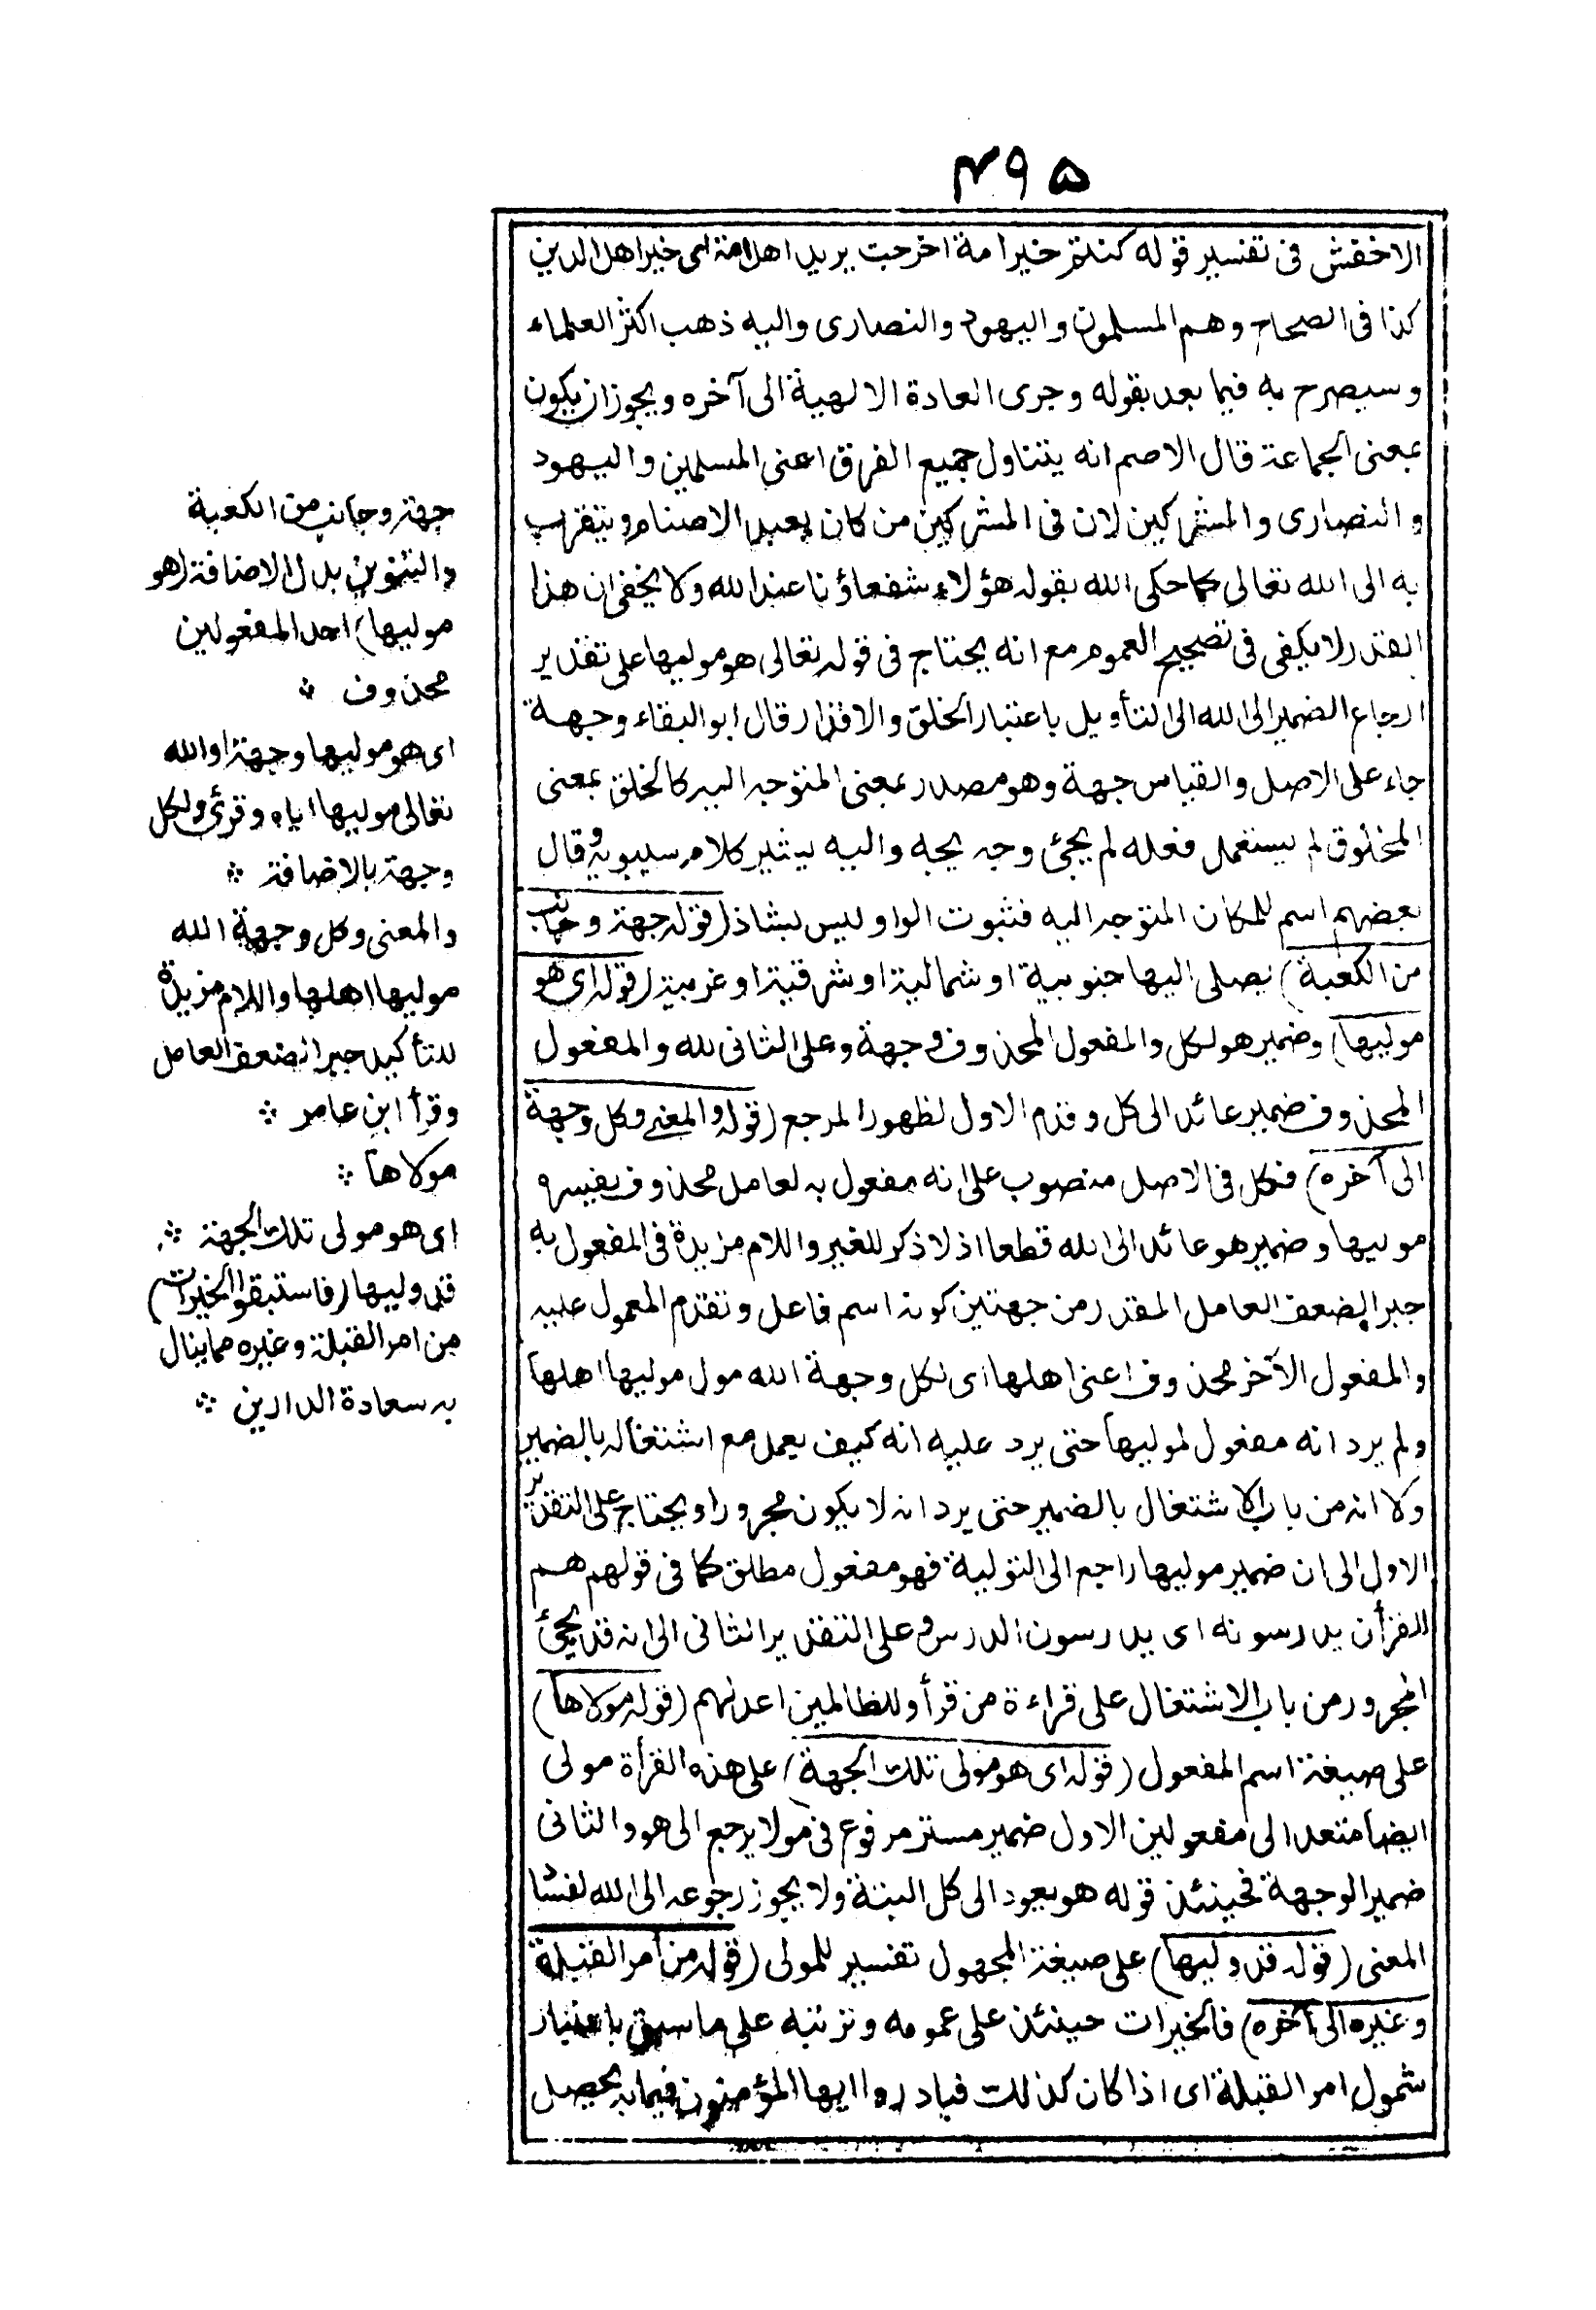 ٤٩٥
الاخفش فى تفسير قوله كنتم خير امة اخرجت يريد اهل امة اى خير اهل الدين
كذا فى الصحاح وهم المسلمون واليهود والنصارى واليه ذهب اكثر العلماء
وسيصرح به فيما بعد بقوله وجرى العادة الالهية الى آخره ويجوز ان يكون
بمعنى الجماعة قال الاصم انه يتناول جميع الفرق اعنى المسلمين واليهود
والنصارى والمشركين لان فى المشركين من كان يعبد الاصنام ويتقرب
به الى الله تعالى كما حكى الله بقوله هؤلاء شفعاؤنا عند الله ولا يخفى ان هذا
القدر لا يكفى فى تصحيح العموم مع انه يحتاج فى قوله تعالى هو موليها على تقدير
ارجاع الضمير الى الله الى التأويل باعتبار الخلق والاقدار قال ابو البقاء وجهة
جاء على الاصل والقياس جهة وهو مصدر بمعنى المتوجه اليه كالخلق بمعنى
المخلوق لم يستعمل فعله لم يجئ وجه يجه واليه يشير كلام سيبويه وقال
بعضهم اسم للمكان المتوجه اليه فثبوت الواو ليس بشاذ (قوله جهة وجانب
من الكعبة) يصلى اليها جنوبية او شمالية او شرقية او غربية (قوله اى هو
موليها) وضمير هو لكل والمفعول المحذوف وجهة وعلى الثانى لله والمفعول
المحذوف ضمير عائد الى كل وقدم الاول لظهور المرجع (قوله والمعنى وكل وجهة
الى آخره) فكل فى الاصل منصوب على انه مفعول به لعامل محذوف يفسره
موليها وضمير هو عائد الى الله قطعا اذ لا ذكر للغير واللام مزيدة فى المفعول به
جبرا لضعف العامل المقدر من جهتين كونه اسم فاعل وتقدم المعمول عليه
والمفعول الآخر محذوف اعنى اهلها اى لكل وجهة الله مول موليها اهلها
ولم يرد انه مفعول لموليها حتى يرد عليه انه كيف يعمل مع اشتغاله بالضمير
ولا انه من باب الاشتغال بالضمير حتى يرد انه لا يكون مجرورا ويحتاج على التقدير
الاول الى ان ضمير موليها راجع الى التولية فهو مفعول مطلق كما فى قولهم هم
القرأن يدرسونه اى يدرسون الدرس وعلى التقدير الثانى الى انه قد يجئ
المجرور من باب الاشتغال على قراءة من قرأ وللظالمين اعد لهم (قوله مولاها)
على صيغة اسم المفعول (قوله اى هو مولى تلك الجهة) على هذه القرأة مولى
ايضا متعد الى مفعولين الاول ضمير مستتر مرفوع فى مولا يرجع الى هو والثانى
ضمير الوجهة فحينئذ قوله هو يعود الى كل البتة ولا يجوز رجوعه الى الله لفساد
المعنى (قوله قد وليها) على صيغة المجهول تفسير للمولى (قوله من امر القبلة
وغيره الى آخره) فالخيرات حينئذ على عمومه وترتبه على ما سبق باعتبار
شمول امر القبلة اى اذا كان كذلك فبادروا ايها المؤمنون فيما به يحصل
جهة وجانب من الكعبة
والتنوين بدل الاضافة (هو
موليها) احد المفعولين
محذوف ❖
اى هو موليها وجهة او الله
تعالى موليها اياه وقرئ ولكل
وجهة بالاضافة ❖
والمعنى وكل وجهة الله
موليها اهلها واللام مزيدة
للتأكيد جبرا لضعف العامل
وقرأ ابن عامر ❖
مولاها ❖
اى هو مولى تلك الجهة ❖
قد وليها (فاستبقوا الخيرات)
من امر القبلة وغيره مما ينال
به سعادة الدارين ❖